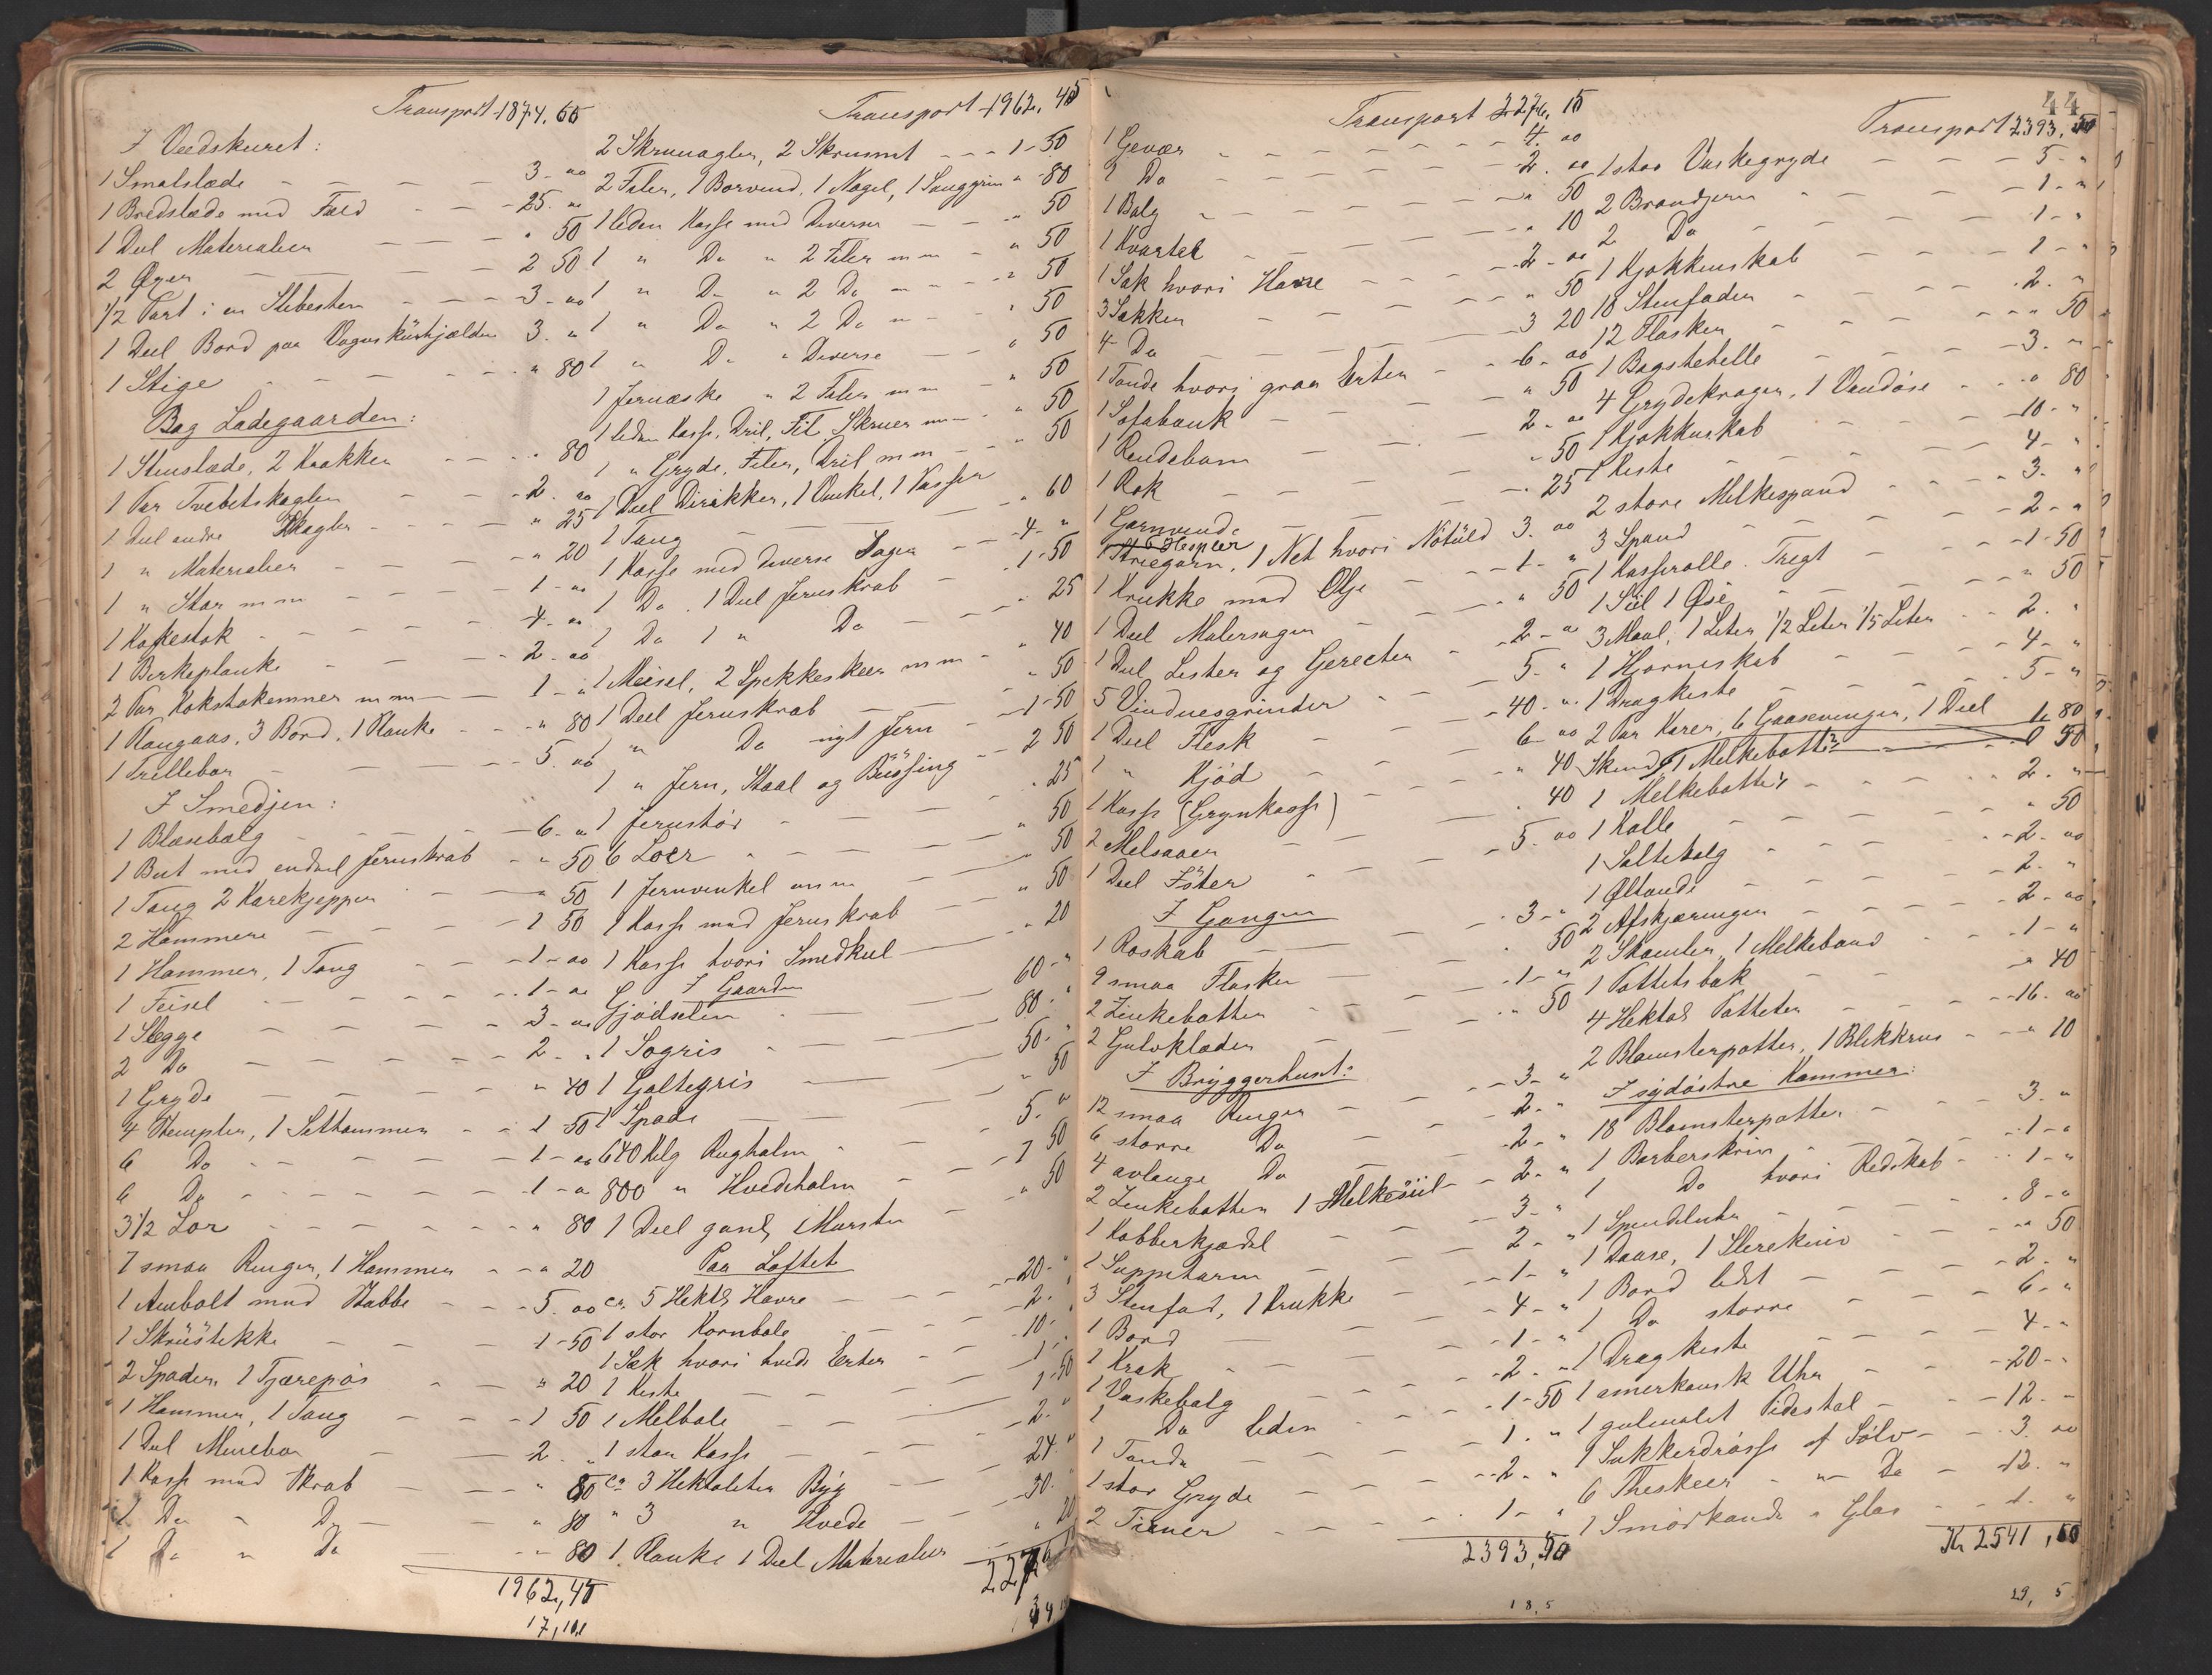 Transport 1874.65
I Vedskuret:
1 Smalslæde - - - 3. oo
1 Bredslæde med Fæld - - 25. oo
1 Deel Materialier - - " 50
2 Øger - - - 2 50
1/2 Part i en Slibesten - - 3. oo
1 Deel Bord paa Vognskürhjælden 3. "
1 Stige - - - " 80
Bag Ladegaarden:
1 Stenslæde, 2 Krakker - - " 80
1 Par Tvebetskagler - - 2. oo
1 Deel andre Skagler - - " 25
1 " Materialier - - " 20
1 " Star m m - - 1 - oo
1 Kafkestok - - 4. oo
1 Birkeplanke - - 2. oo
2 Par Kokstokemner m m - 1 - "
1 Langaas, 3 Bord, 1 Planke - " 80
1 Trillebør - - 5. oo
I Smedjen:
1 Blæsebælg - - 6. "
1 But med endeel Jernskrab - " 50
1 Tang 2 Karekjepper - " 50
2 Hammere - - 1 50
1 Hammer, 1 Tang - - 1 - oo
1 Feisel - - 1 - oo
1 Slegge - - 3 - oo
2 Do - - 2. "
1 Gryde - - " 40
4 Stempler, 1 Sethammer - 1 50
6 Do - - 1 - oo
6 Do - - 1 - "
3 1/2 Lor - - " 80
7 smaa Ringer, 1 Hammer - " 20
1 Ambolt med Stabbe - - 5. oo
1 Skrüstikke - - 1 - 50
2 Spader, 1 Tjærepøs - " 20
1 Hammer, 1 Tang - - 1 50
1 Deel Murebor - - 2. "
1 Kasse med Skrab - - " 80
1 Do " Do - - " 80
1 Do " Do - - " 80
1962,45
17,10,1
Transport 1962.45
2 Skruenagler, 2 Skruemt - - 1 - 50
2 Filer, 1 Borvind, 1 Nagel, 1 Sauggrim " 80
1 liden Kasse med Diverse - - " 50
1 " Do " 2 Filer m m - " 50
1 " Do " 2 Do " - - " 50
1 " Do " 2 Do " - - " 50
1 " Do " Diverse - - " 50
1 Jernæske " 2 Filer m m - " 50
1 liden Kasse, Dril, Fil, Skruer m m - " 50
1 " Gryde, Filer, Dril m m - - " 50
1 Deel Dirikker, 1 Vinkel, 1 Passer " 60
1 Tang - - 4 - "
1 Kasse med diverse Sager - 1 - 50
1 Do. 1 Deel Jernskrab - " 25
1 Do 1 " Do - " 40
1 Meisel, 2 Spekkeskeer m m - " 50
1 Deel Jernskrab - - 1 - 50
1 " Do nyt Jern - 2 50
1 " Jern, Staal og Büssing - " 25
1 Jernstør - - " 50
6 Loer - - " 50
1 Jernvinkel m m - - " 50
1 Kasse med Jernskrab - - " 20
1 Kasse hvori Smedkul
I Gaarden
Gjødselen - - 60 - "
1 Sogris - - 80. "
1 Galtegris - - 50. "
1 Spade - - " 50
640 Kilg Rughalm - 5. "
800 " Hvedehalm - 7 50
1 Deel gaml Mursten - " 50
Paa Loftet
cr. 5 Hektl Havre - - 20 - "
1 stor Kornbole - - 2. "
1 Sæk hvori hvide Erter - 10. "
1 Kiste - - 1. "
1 Melbole - - 1 - 50
1 stor Kasse - - 2. "
cr 3 Hektoliter Byg - - 24. "
" 3 " Hvede - - 30. "
1 Planke 1 Deel Materialier " 20
2276
Transport 2276, 15
1 Gevær - - 4. oo
2 Do - - 2. oo
1 Balg - - " 50
1 Kvartel - - " 10
1 Sæk hvori Havre - - 2 - oo
3 Sækker - - " 50
4 Do - - 3 20
1 Tønde hvori graa Erter - 6 - oo
1 Sofabænk - - " 50
1 Rendebom - - 2. oo
1 Rok - - " 50
1 Garnvinde - - " 25
6 Hespler
Striegarn, 1 Net hvori Nötüld 3. oo
1 Krukke med Olje - - 1 - "
1 Deel Malersager - - " 50
1 Deel Lister og Gerechter - 2 - "
5 Vinduesgrinder - - 5. "
1 Deel Flesk - - 40 - "
1 " Kjød - - 6 - oo
1 Kasse (Grynkasse) - - " 40
2 Melsaaer - - " 40
1 Deel Ister - - 5. oo
I Gangen
1 Roskab - - 3 - "
9 smaa Flasker - - " 50
2 Zinkebøtter - - 1 - "
2 Gulvklæder - - " 50
I Bryggerhuset:
12 smaa Ringer - - 3 - "
6 større Do - - 2. "
4 avlange Do - - 2. "
2 Zinkebøtter 1 Melkesiil - 2. "
1 Kobberkjædel - - 3 - "
1 Suppeterin - - 2 - "
3 Stenfad, 1 Krukke - - 1 - "
1 Bord - - 4 - "
1 Krak - - 1 - "
1 Vaskebalg - - 2. "
1 Do liden - - 1 - 50
1 Tønde - - 1. "
1 stor Gryde - - 2. "
2 Tiener - - 1 - "
2393,50
18,5
44
Transport 2393,50
1 stor Vaskegryde - - 5 - "
2 Brandjern - - 1 - "
2 Do - - 1 - "
1 Kjøkkenskab - - 1 - "
18 Stenfader - - 2. "
12 Flasker - - " 50
1 Bagstehelle - - 3. "
4 Grydekroger, 1 Vandøse - " 80
1 Kjøkkenskab - - 10 - "
1 Kiste - - 4 - "
2 store Melkespand - - 3. "
3 Spand - - 2 - "
1 Kasserolle. Tregt - - 1 - 50
1 Siil 1 Øse - - " 50
3 Maal, 1 Liter, 1/2 Liter 1/5 Liter - 2. "
1 Hjørneskab - - 4 - "
1 Dragkiste - - 5 - "
2 Par Karer, 6 Gaasevinger, 1 Deel
Skind 1 Melkebøtte 1. 80
1 Melkebøtte - - 2. "
1 Kolle - - " 50
1 Saltebalg - - 2. oo
1 Øltønde - - 2. "
2 Afskjæringer - - 2 - oo
2 Skamler, 1 Melkebænd - 1 - "
1 Pottetsbak - - " 40
4 Hektol Potteter - - 16. oo
2 Blomsterpotter, 1 Blikkrus - " 10
I sydøstre Kammer:
18 Blomsterpotter - - 3. "
1 Barberskrin - - 1 - "
1 Do hvori Redskab - 1 - "
1 Spindeluhr - - 8 - "
1 Daase, 1 Slirekniv - " 50
1 Bord lidet - - 2. "
1 Do større - - 6 - "
1 Dragkiste - - 4 - "
1 amerkansk Uhr - - 20 - "
1 gulmalet Pidestal - - 12. "
1 Sukkerdrøsse af Sølv - 3. oo
6 Theskeer - " Do - 12. "
1 Smørkande " Glas - 1. "
Kr 2541,60
29, 5